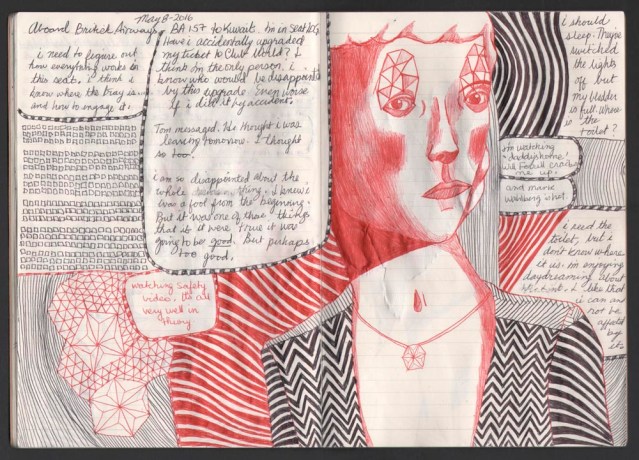 May 8-2016
Aboard British Airways
i need to figure out
how everything works in
this seat. i think i
know where the tray is...
and how to engage it.
BA 157 to Kuwait. i'm in seat
Have i accidentally upgraded
my ticket to Club World? i
think i'm the only person i
know who would be disappointed
by this upgrade. Even worse
if i did it by accident.
Tom messaged. He thought i was
leaving tomorrow. i thought
so too.
i am so disappointed about the
whole thing. i knew i
was a fool from the beginning.
But it was one of those things
that if it were true it was
going to be good. But perhaps
too good.
watching safety
video. the art
very well in
theory
i should
sleep. They've
switched
the lights
off but
my bladder
is full. Where
is the
toilet?
i'm watching
daddy's home.
will Ferrell cracks
me up.
and mark
wahlberg is hot
i need the
toilet, but i
don't know where
it is. i'm enjoying
daydreaming about
i like that
i can and
not be
affected
by
it.